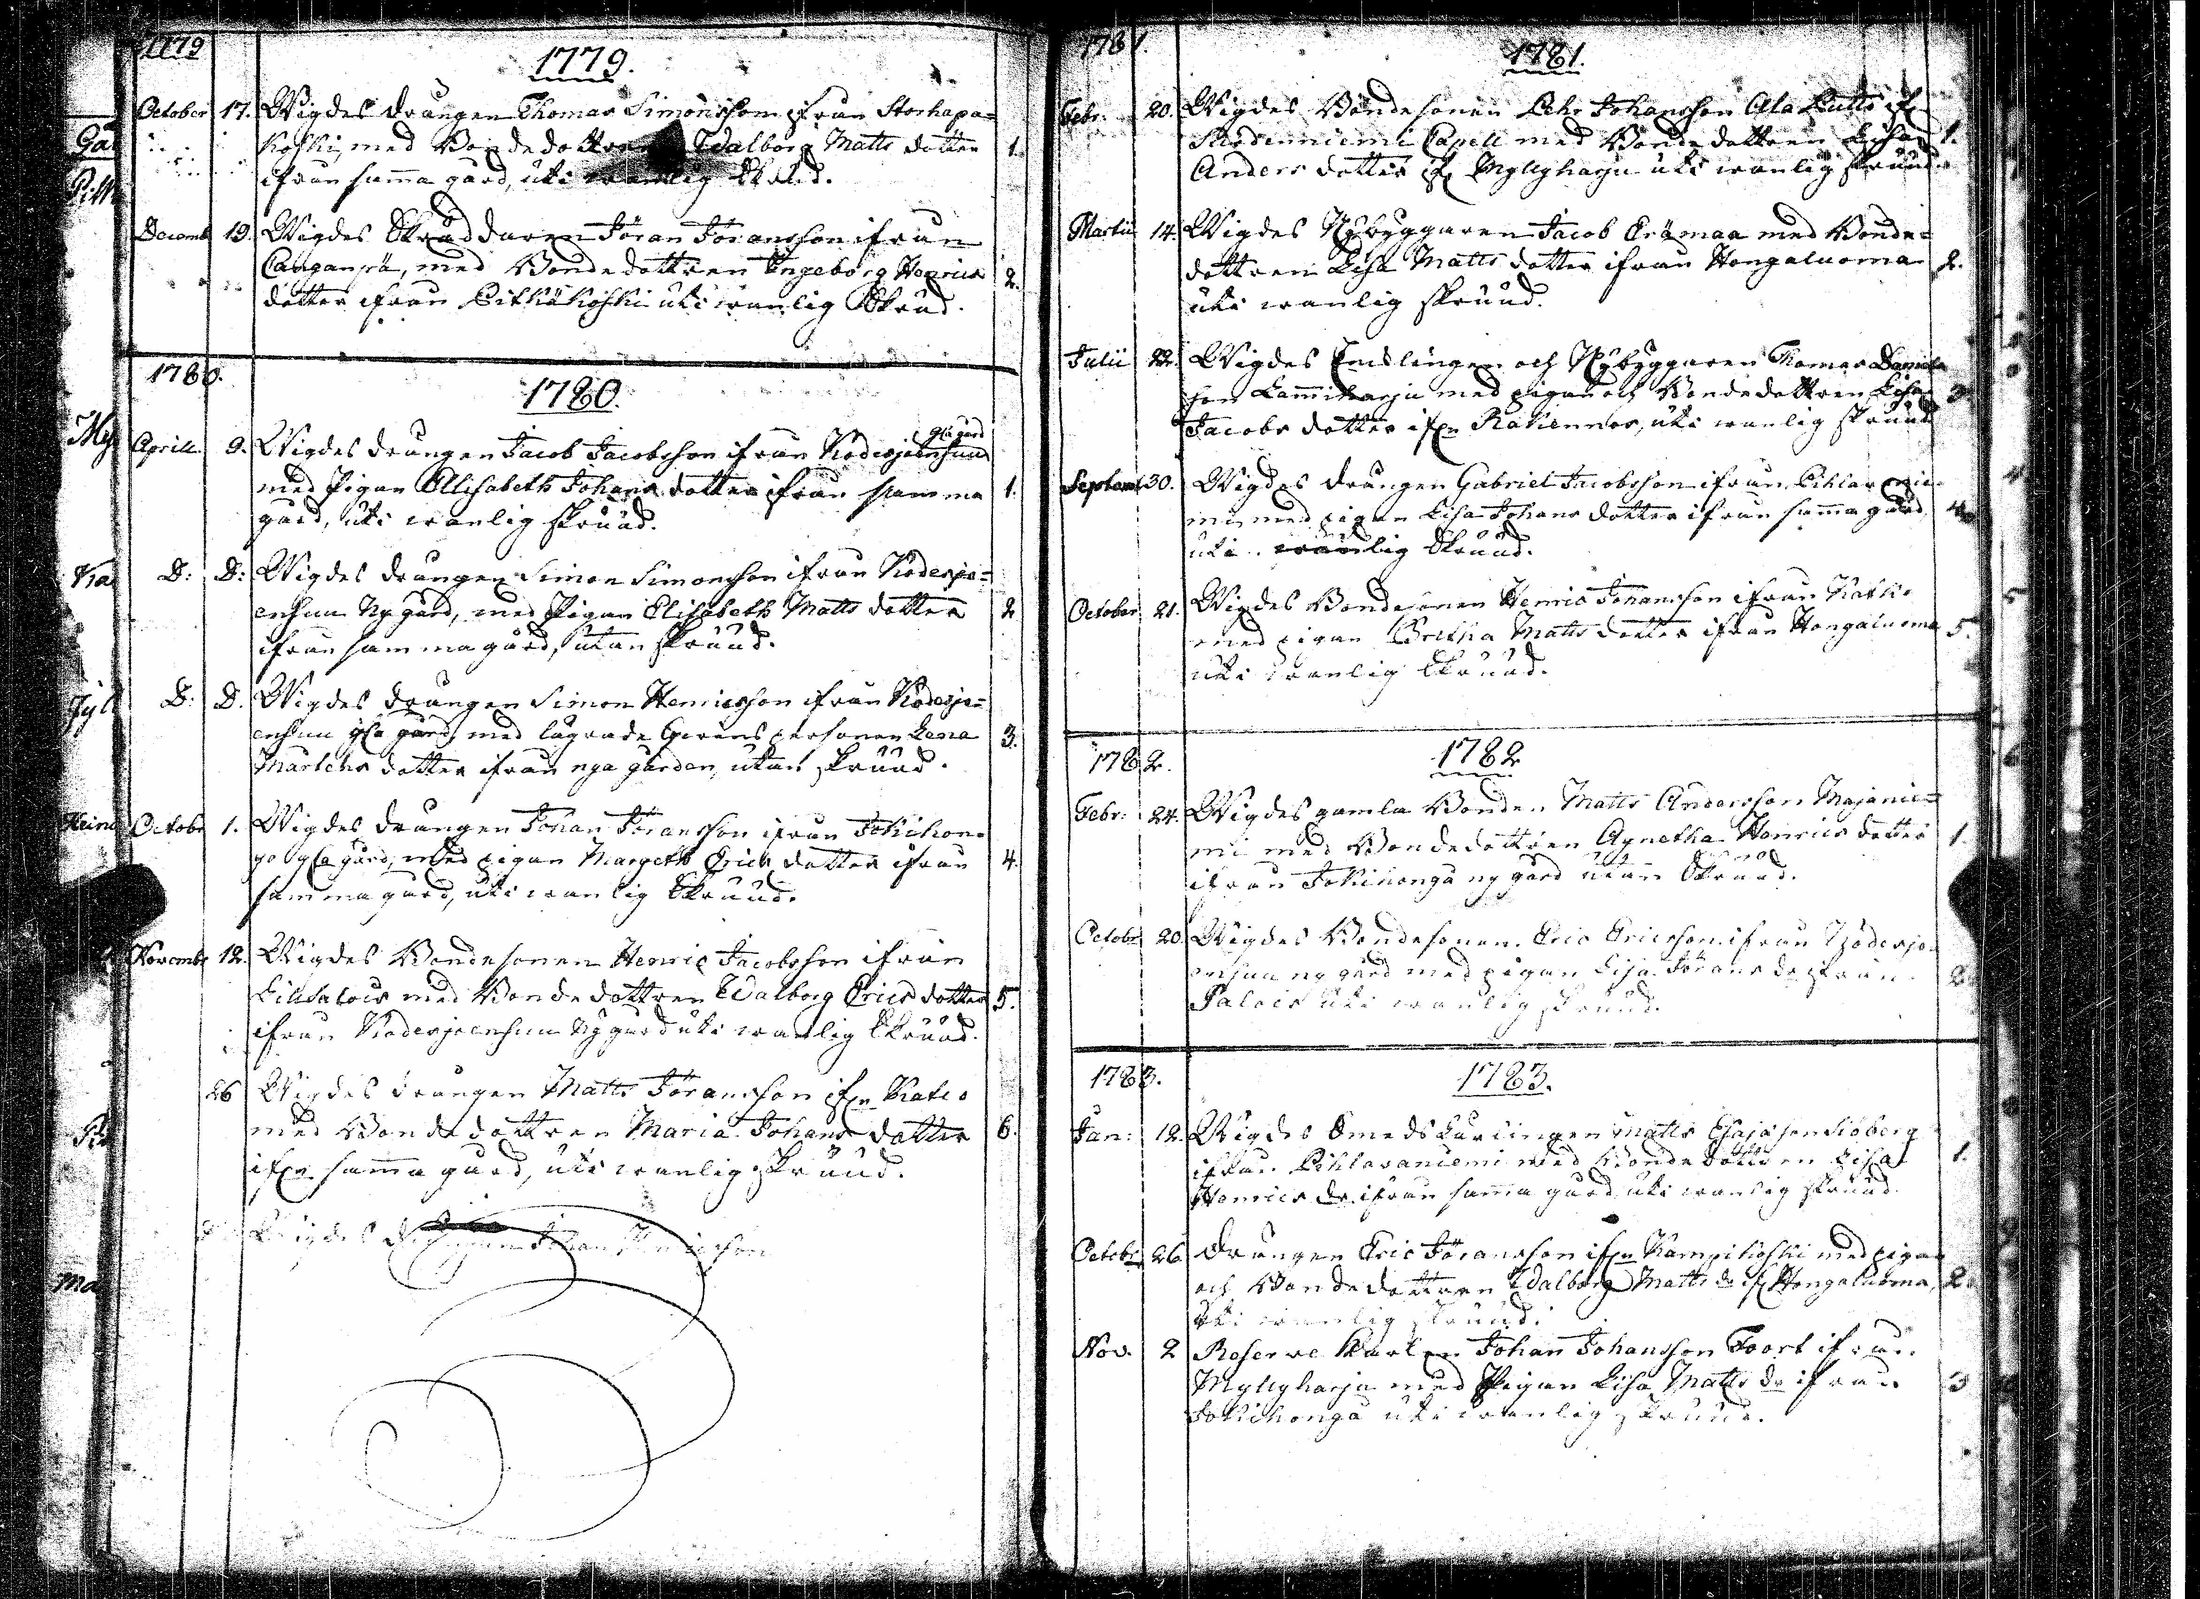 1779
1779.
October 17. Wigdes drängen Thomas Simonsson ifrån Storhapa=
koski, med Bondedottren Walborg Matts dotter 1.
ifrån sama gård, uti wanlig Skrud.
Decemb 19. Wigdes Skräddaren Jöran Jöransson ifrån
Cauganperä, med Bondedottren Ingeborg Henrics 2.
dotter ifrån Pitkäkoski uti wanlig Skrud.
1780.
1780.
Aprill. 9. Wigdes drängen Jacob Jacobsson ifrån Kodesjoensuu gla gård
med Pigan Ellisabeth Johans dotter ifrån samma 1.
gård, uti wanlig skruud.
D: D: Wigdes drängen Simon Simonsson ifrån Kodesjo=
ensuu Ny gård, med Pigan Elisabeth Matts dotter 2
ifrån samma gård, utan skruud.
D: D. Wigdes drängen Simon Henricsson ifrån Kodesjo=
ensuu gla gård, med lägrade Qwens personen Lena 3.
Mårtens dotter ifrån nya gården, utan skruud.
Octobr 1. Wigdes drängen Johan Jöransson ifrån Jokihon=
go gla gård, med pigan Margeth Erics dotter ifrån 4.
samma gård, uti wanlig Skruud.
Novembr 12. Wigdes Bondesonen Henric Jacobsson ifrån
med Bondedottren Walborg Erics dotter 5.
ifrån Kodesjoensuu Ny gård uti wanlig Skruud.
26 Wigdes drängen Matts Jöransson ifrn Katko
med Bondedottren Maria Johans dotter 6.
ifrn sama gård, uti wanlig skruud.
Wigdes Johan
1781.
1781.
Febr. 20. Wigdes Bondesonen Pehr Johansson Ala ifr
Capell med Bondedottren Lisa 1.
Anders dotter ifr Myllyharju uti wanlig skruud.
Martii 14. Wigdes Nybyggaren Jacob Erämaa med Bonde=
dottren Lisa Matts dotter ifrån Hongaluoma 2.
uti wanlig skruud.
Julii 22. Wigdes Enslingen och Nybyggaren Thomas Daniels
son Lammiharju med pigan och Bondedottren Lisa 3
Jacobs dotter ifrn uti wanlig skruud
Septemb 30. Wigdes drängen Gabriel Jacobsson ifrån Pihlavanie=
mi, med pigan Lisa Johans dotter ifrån sama gård, 4.
uti wanlig Skruud.
October 21. Wigdes Bondesonen Henric Johansson ifrån Katko
med pigan Britha Matts dotter ifrån Hongaluoma 5.
uti wanlig Skruud.
1782.
1782
Febr: 24. Wigdes gamla Bonden Matts Andersson Majanie=
mi med Bondedottren Agnetha Henrics dotter 1
ifrån Jokihonga ny gård utan Skruud.
Octobr 20. Wigdes Bondesonen Eric Ericsson ifrån Kodesjo=
ensuu ny gård med pigan Lisa Jörans dr ifrån 2
Salois uti wanlig skruud.
1783.
1783.
Jan: 12. Wigdes Smeds Lärlingen Matts Esajasson Siöberg
ifrån Pihlavaniemi med Bondedottren Lisa 1.
Henrics dr ifrån sama gård uti wanlig skruud.
Octobr 26 drängen Eric Jöransson ifrn Kampikoski med pigan
och Bondedottren Walborg Matts dr ifr Hongaluoma, 2
uti wanlig skruud.
Nov. 2 Reserve Karlen Johan Johansson Foort ifrån
Myllyharju med Pigan Lisa Matts dr ifrån 3
Jokihonga uti wanlig skruud.